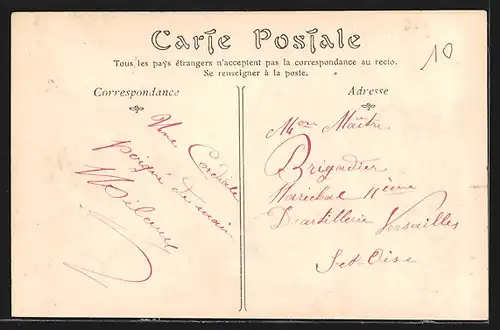 Carte Postale
Tous les pays étrangers n'acceptent pas la correspondance au recto.
Se renseigner à la poste.
10
Correspondance
Une Cordiale
poigné de main
Adresse
Mon Maître
Brigadier
Maréchal 11ème
D'artillerie Versailles
Set-Oise